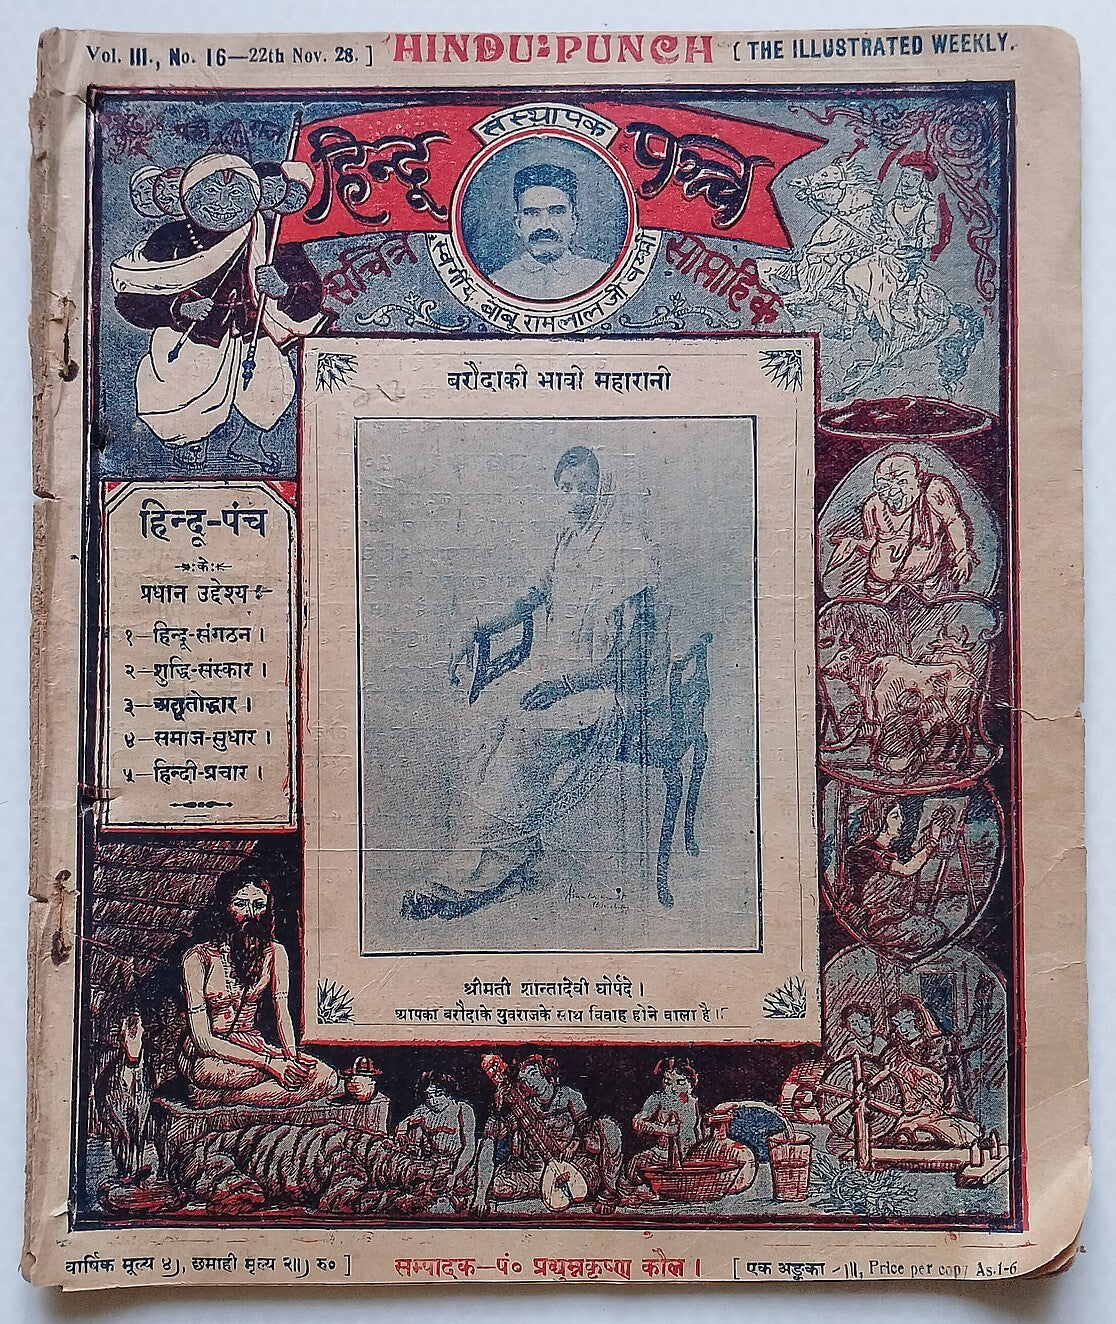 Vol. III., No. 16—22th Nov. 28. ] HINDU:PUNCH [ THE ILLUSTRATED WEEKLY.
संस्थापक
हिन्दू पञ्च
सचित्र साप्ताहिक
स्वर्गीय बाबू रामलाल जी वर्म्मा
बरौदाकी भावी महारानी
हिन्दू-पंच
के
प्रधान उद्देश्य
१—हिन्दू-संगठन ।
२—शुद्धि-संस्कार ।
३—अछूतोद्धार ।
४—समाज-सुधार ।
५—हिन्दी-प्रचार ।
श्रीमती शान्तादेवी घोर्पदे ।
आपका बरौदाके युवराजके साथ विवाह होने वाला है ।
वार्षिक मूल्य ४), छमाही मूल्य २॥) रु० ] सम्पादक—पं० प्रद्युम्नकृष्ण कौल । [ एक अङ्कका -)॥, Price per copy As.1-6